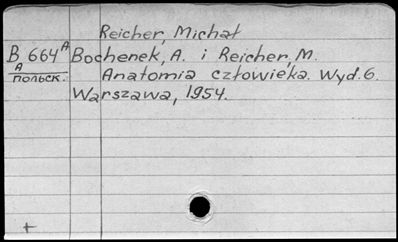 Reicher, Michał
B 664 A Bochenek, A. i Reicher, M.
А польск. Anatomia człowieka. Wyd. 6.
Warszawa, 1954.
+